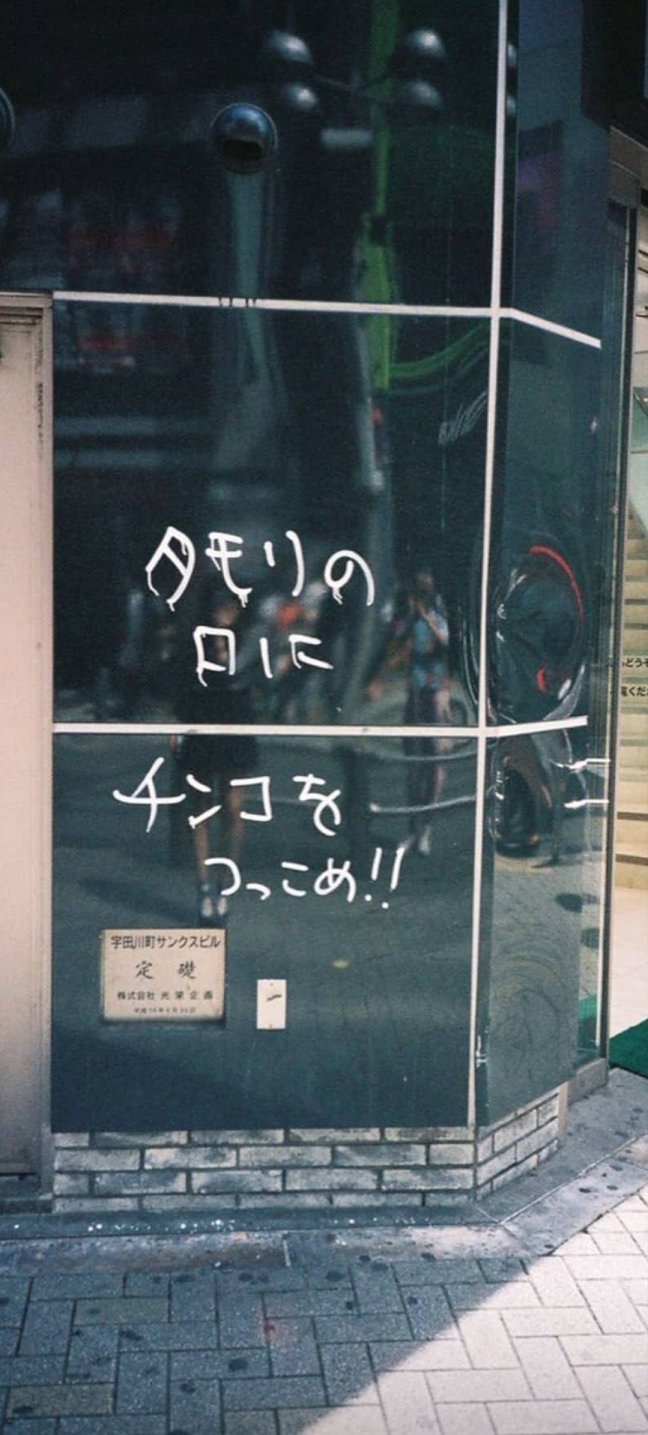 タモリの
口に
チンコを
つっこめ!!
宇田川町サンクスビル
定 礎
株式会社 光栄企画